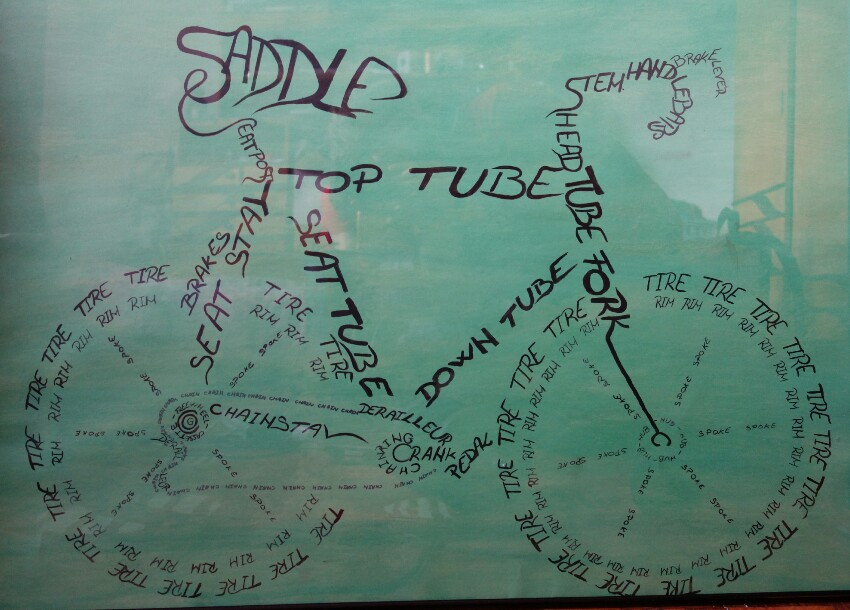 SADDLE
SEATPOST
STEM HANDLEBARS
BRAKE LEVER
HEAD TUBE
TOP TUBE
SEAT STAY
BRAKES
SEAT TUBE
DOWN TUBE
FORK
TIRE TIRE TIRE TIRE TIRE TIRE TIRE TIRE TIRE TIRE TIRE TIRE TIRE TIRE
RIM RIM RIM RIM RIM RIM RIM RIM RIM RIM RIM RIM RIM RIM
SPOKE SPOKE SPOKE SPOKE SPOKE SPOKE SPOKE SPOKE
CHAIN CHAIN CHAIN CHAIN CHAIN CHAIN CHAIN
FREEWHEEL
CHAINSTAY
DERAILLEUR
CHAINRING
CRANK
PEDAL
CHAIN CHAIN CHAIN CHAIN CHAIN CHAIN
TIRE TIRE TIRE TIRE TIRE TIRE TIRE TIRE TIRE TIRE TIRE TIRE TIRE TIRE TIRE TIRE
RIM RIM RIM RIM RIM RIM RIM RIM RIM RIM RIM RIM RIM RIM RIM RIM
SPOKE SPOKE SPOKE SPOKE SPOKE SPOKE SPOKE SPOKE
HUB HUB HUB HUB